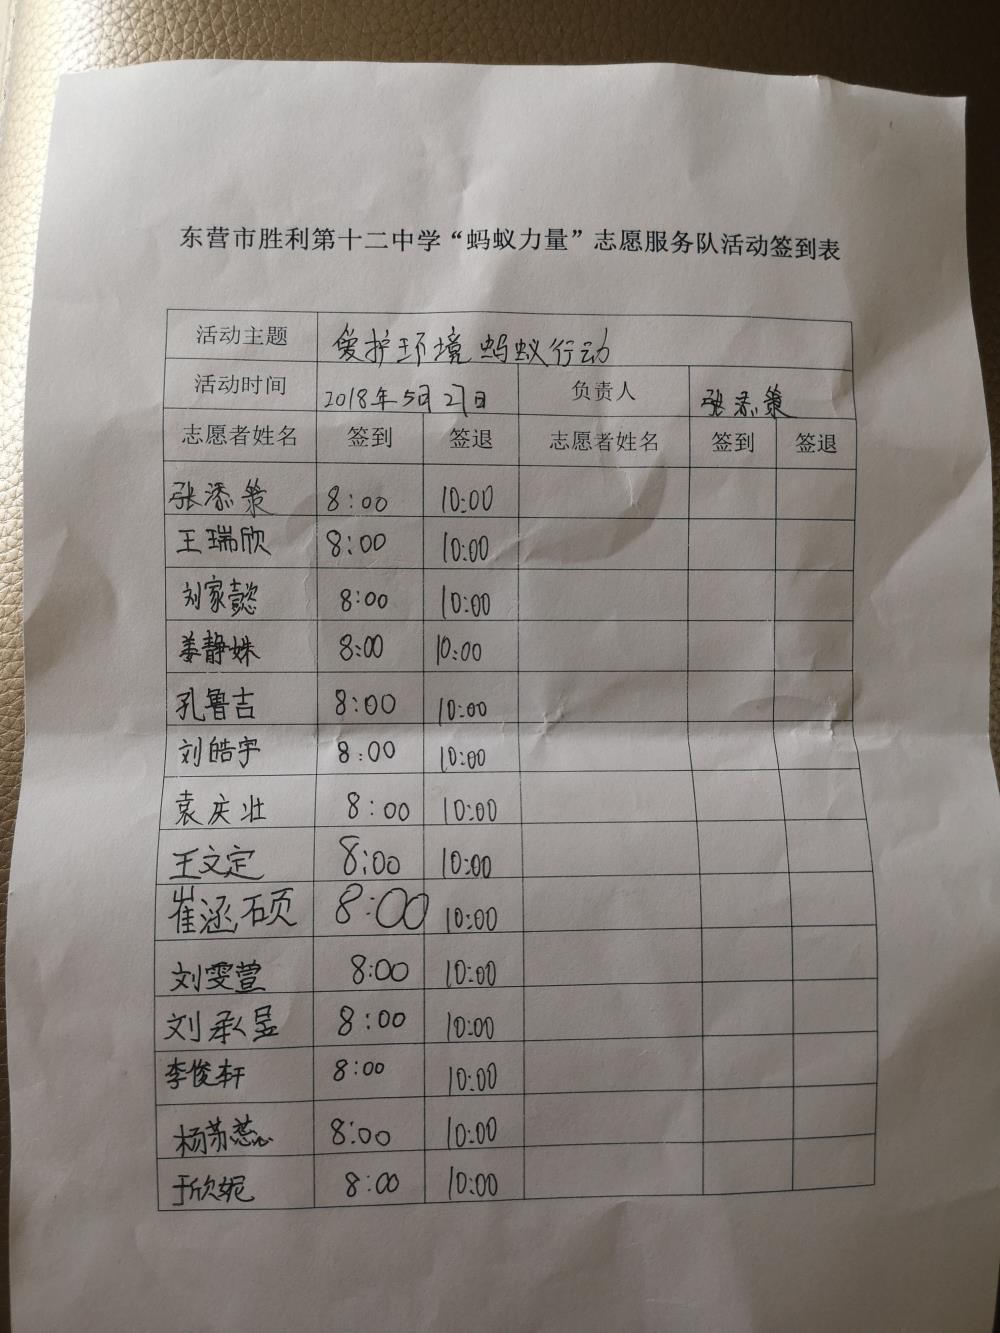 东营市胜利第十二中学“蚂蚁力量”志愿服务队活动签到表
活动主题 爱护环境 蚂蚁行动
活动时间 2018年5月27日 负责人 张添策
志愿者姓名 签到 签退 志愿者姓名 签到 签退
张添策 8:00 10:00
王瑞欣 8:00 10:00
刘家懿 8:00 10:00
姜静姝 8:00 10:00
孔鲁吉 8:00 10:00
刘皓宇 8:00 10:00
袁庆壮 8:00 10:00
王文定 8:00 10:00
崔涵硕 8:00 10:00
刘雯萱 8:00 10:00
刘承昱 8:00 10:00
李俊轩 8:00 10:00
杨芳蕊 8:00 10:00
于欣妮 8:00 10:00